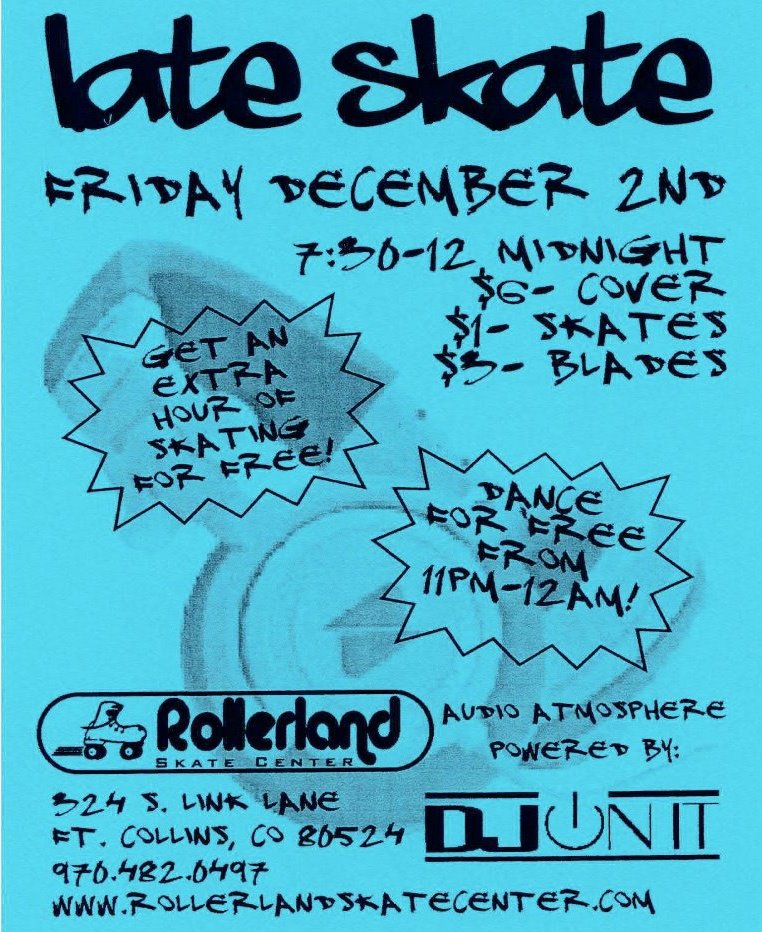 late skate
FRIDAY DECEMBER 2ND
7:30-12 MIDNIGHT
$6- COVER
$1- SKATES
$3- BLADES
GET AN
EXTRA
HOUR OF
SKATING
FOR FREE!
DANCE
FOR FREE
FROM
11PM-12AM!
Rollerland
SKATE CENTER
AUDIO ATMOSPHERE
POWERED BY:
DJ ON IT
324 S. LINK LANE
FT. COLLINS, CO 80524
970.482.0497
WWW.ROLLERLANDSKATECENTER.COM